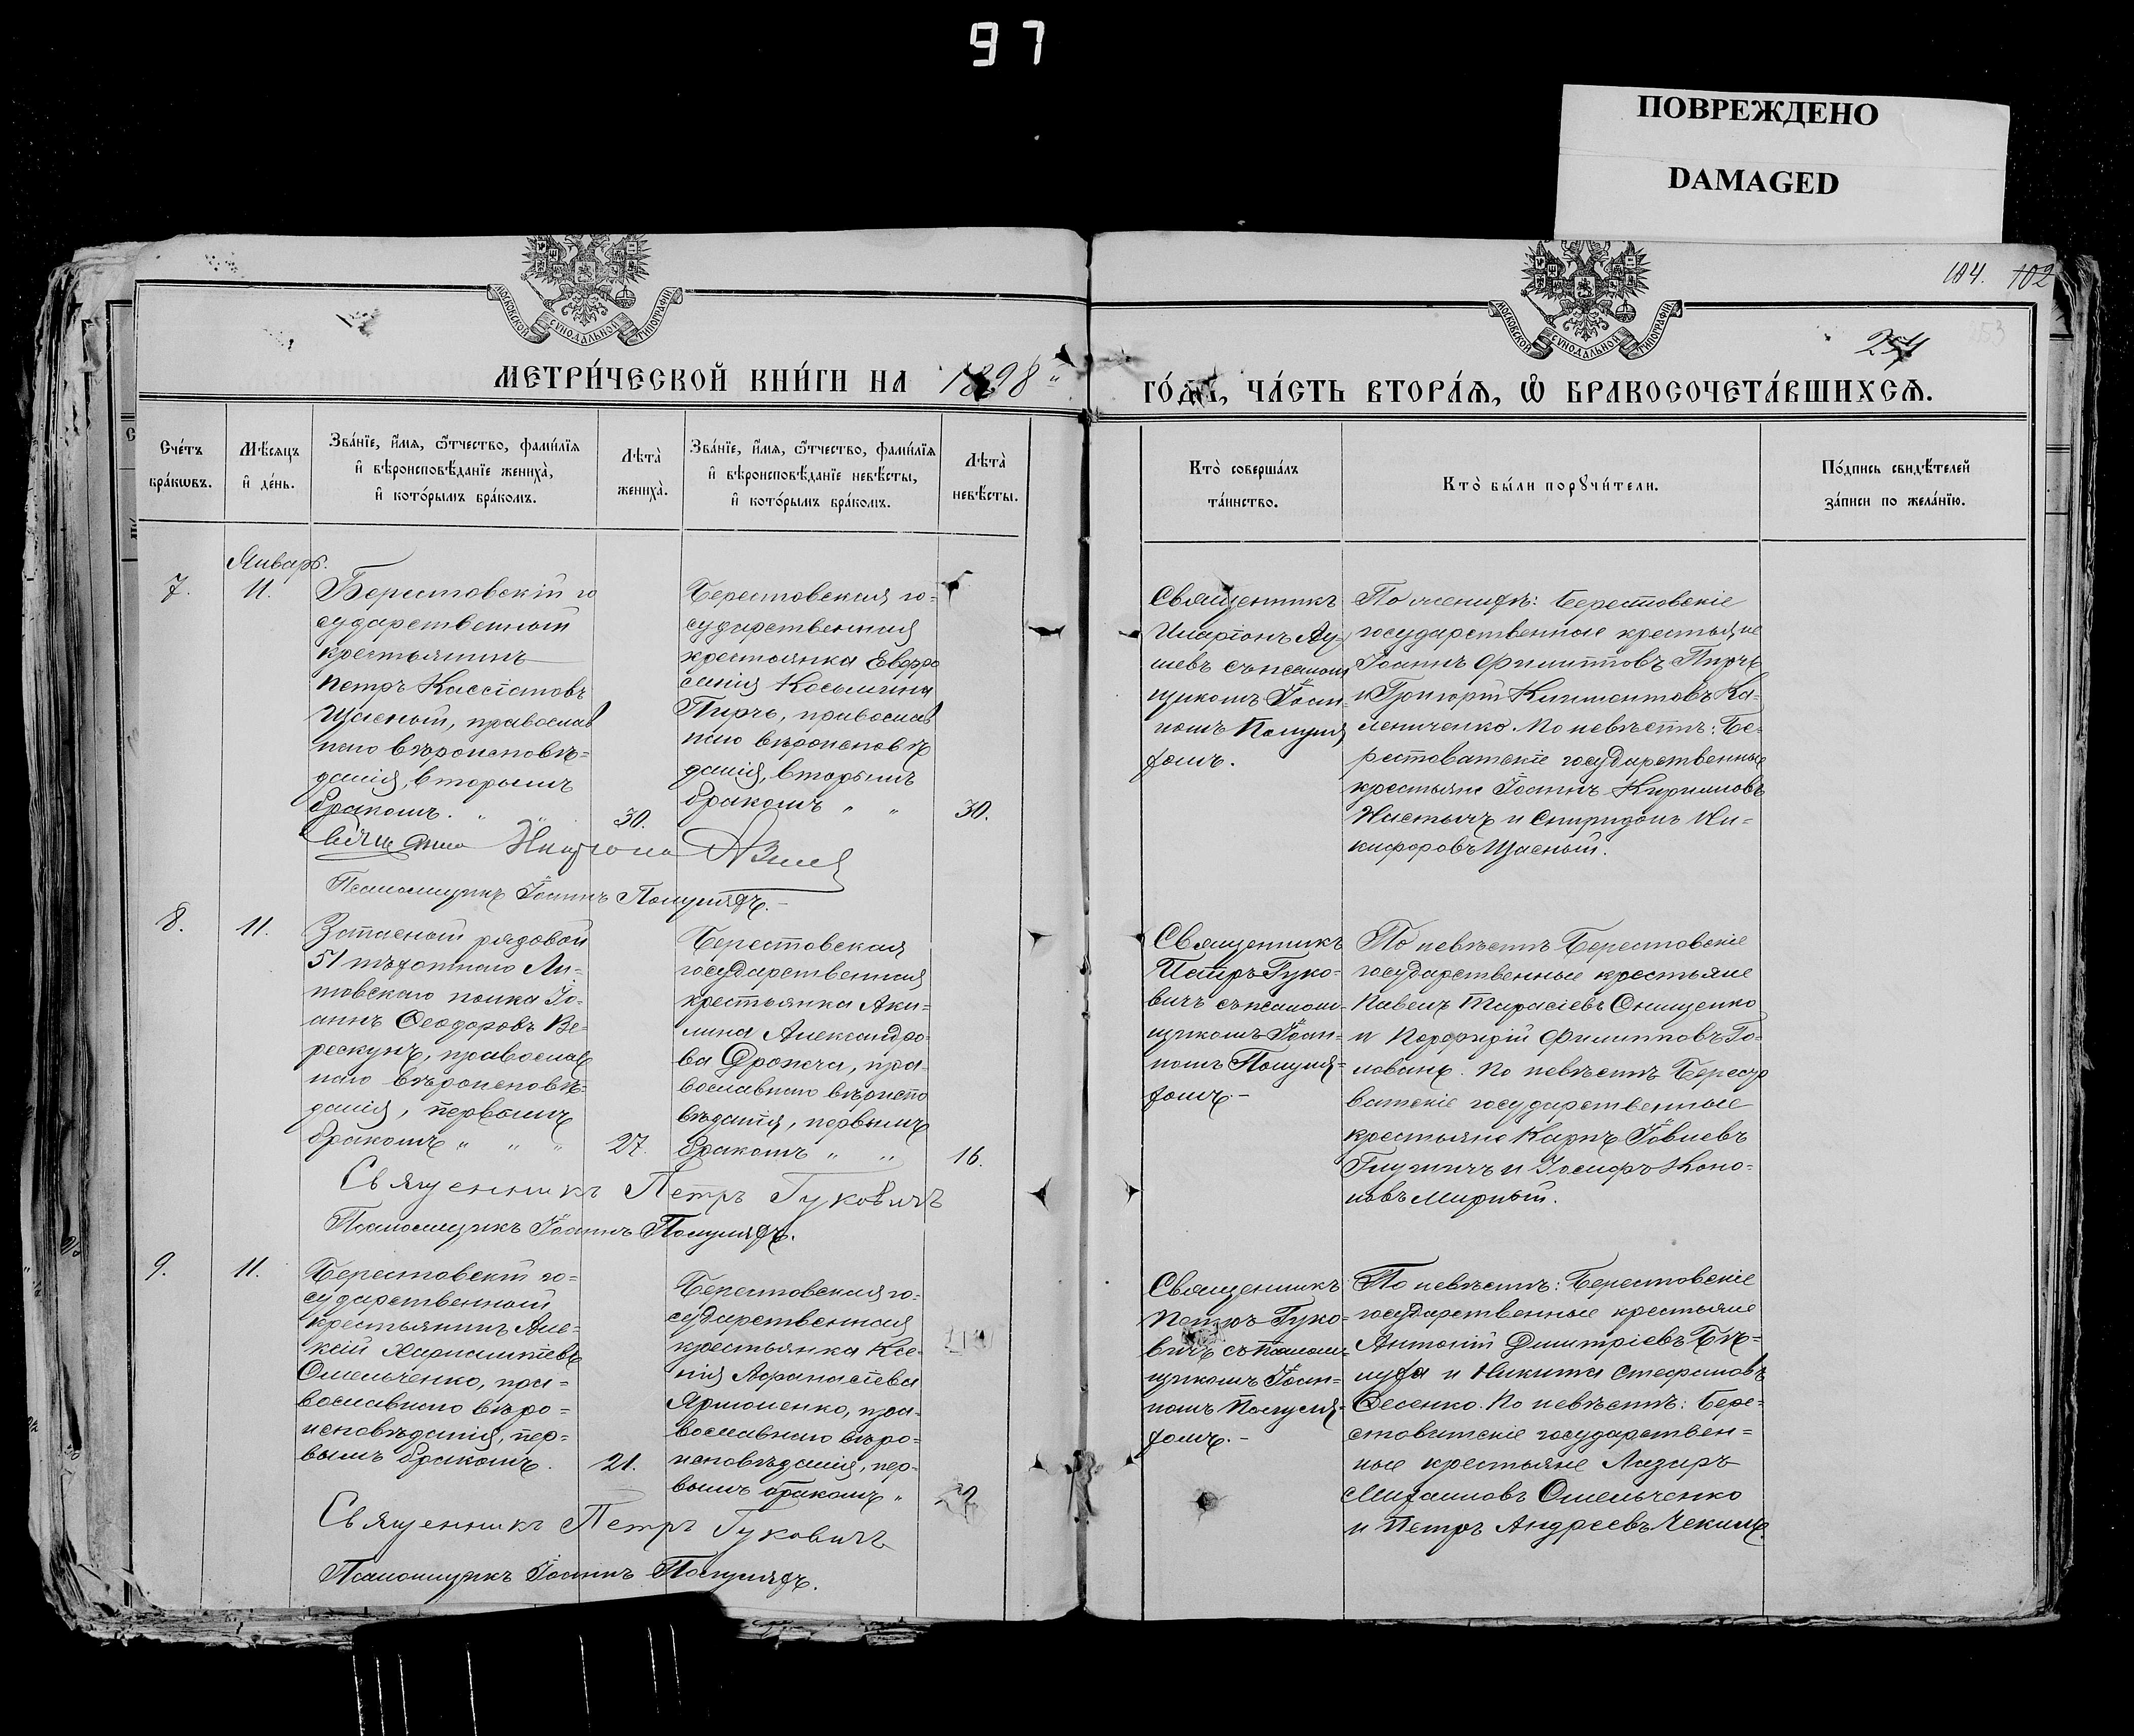 97
ПОВРЕЖДЕНО
DAMAGED
104. 102
254
МОСКОВСКОЙ СѴНОДАЛЬНОЙ ТИПОГРАФІИ
МОСКОВСКОЙ СѴНОДАЛЬНОЙ ТИПОГРАФІИ
МЕТРИ́ЧЕСКОЙ КНИ́ГИ НА 1898
ГО́ДЪ, ЧА́СТЬ ВТОРА́Я, Ѽ БРАКОСОЧЕТА́ВШИХСЯ.
Сче́тъ
бра́кωвъ.
Мѣ́сяцъ
и҆ де́нь.
Зва́нїе, и҆́мя, ѻ҆́тчество, фами́лїя
и҆ вѣроисповѣ́данїе жениха̀,
и҆ кото́рымъ бра́комъ.
Лѣта̀
жениха̀.
Зва́нїе, и҆́мя, ѻ҆́тчество, фами́лїя
и҆ вѣроисповѣ́данїе невѣ́сты,
и҆ кото́рымъ бра́комъ.
Лѣта̀
невѣ́сты.
Кто̀ соверша́лъ
та́инство.
Кто̀ бы́ли порꙋчи́тели.
По́дпись свидѣ́телей
за́писи по жела́нїю.
Январь.
7.
11.
Берестовскій го
сударственный
крестьянинъ
Петръ Кассіановъ
Щасный, православ
наго вѣроисповѣ-
данія, вторымъ
бракомъ.
30.
Берестовская го-
сударственная
крестьянка Евфро
синія Косьмина
Пирчъ, православ
наго вѣроисповѣ
данія, вторымъ
бракомъ " "
30.
Священникъ
Иларіонъ
съ псалом
щикомъ Іоан-
номъ Полуля
хомъ.
По женихѣ: Берестовскіе
государственные крестьяне
Іоаннъ Филипповъ Пирчъ
и Григорій Климентовъ Ка-
лениченко. По невѣстѣ: Бе-
рестоватскіе государственные
крестьяне Іоаннъ Кириловъ
и Спиридонъ Ни-
кифоровъ Щасный.
Псаломщикъ Іоаннъ Полуляхъ.
8.
11.
Запасный рядовой
51 пѣхотнаго Ли-
товскаго полка Іо-
аннъ Ѳеодоровъ Ве-
рескунъ, православ
наго вѣроисповѣ-
данія, первымъ
бракомъ " " "
27.
Берестовская
государственная
крестьянка Аки-
лина Александро-
ва Дропча, пра-
вославнаго вѣроиспо
вѣданія, первымъ
бракомъ " "
16.
Священникъ
Петръ Гуко-
вичъ съ псалом-
щикомъ Іоан-
номъ Полуля-
хомъ.-
По невѣстѣ Берестовскіе
государственные крестьяне
Павелъ Тарасіевъ Онищенко
и Порфирій Филипповъ Го-
лованъ. По невѣстѣ Бересто
ватскіе государственные
крестьяне Карпъ Іовлевъ
и Іосифъ Коно-
новъ Мирный.
Священникъ Петръ Гуковичъ
Псаломщикъ Іоаннъ Полуляхъ.
9.
11.
Берестовскій го-
сударственный
крестьянинъ Але-
ксій Харлампіевъ
Омельченко, пра-
вославнаго вѣро-
исповѣданія, пер-
вымъ бракомъ.
21.
Берестовская го-
сударственная
крестьянка Ксе-
нія Аѳанасіева
Ярмоленко, пра-
вославнаго вѣро-
исповѣданія, пер-
вымъ бракомъ "
Священникъ
Петръ Гуко-
вичъ съ псалом-
щикомъ Іоан-
номъ Полуля-
хомъ.-
По невѣстѣ: Берестовскіе
государственные крестьяне
Антоній Димитріевъ Бѣ-
луха и Никита Стефановъ
Ѳесенко. По невѣстѣ: Бере-
стоватскіе государствен-
ные крестьяне Лазарь
Михаиловъ Омельченко
и Петръ Андреевъ
Священникъ Петръ Гуковичъ
Псаломщикъ Іоаннъ Полуляхъ.